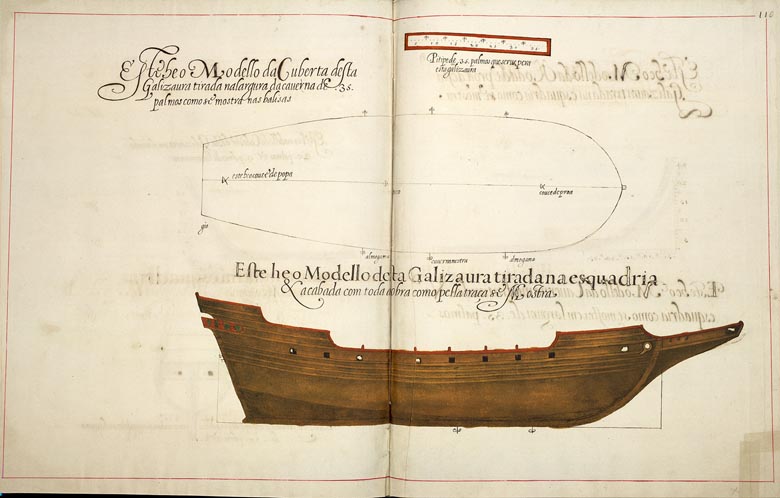 110
Este he o Modello da Cuberta desta
Galizaura tirada na largura da caverna de .35.
palmos como se mostra nas balisas
Pitipe de .35. palmos que serve pera
este galizaura
este he o couce de popa
couce de proa
gio
almogama
almogama
Este he o Modello desta Galizaura tirada na esquadria
& acabada com toda aobra como pella traça se Mostra.